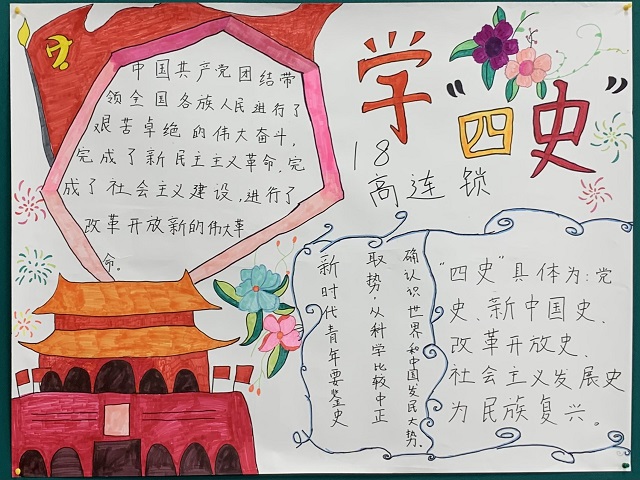 学
“四史”
18
高连锁
中国共产党团结带
领全国各族人民进行了
艰苦卓绝的伟大奋斗,
完成了新民主主义革命,完
成了社会主义建设,进行了
改革开放新的伟大革
命。
确认识世界和中国发民大势、
取势,从科学比较中正
新时代青年要鉴史
“四史”具体为:党
史、新中国史、
改革开放史、
社会主义发展史
为民族复兴。